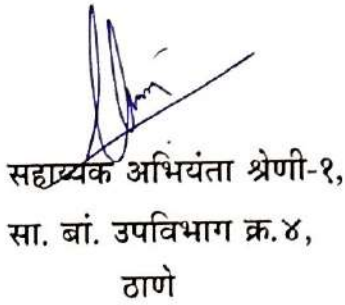 सहाय्यक अभियंता श्रेणी-१,
सा. बां. उपविभाग क्र.४,
ठाणे